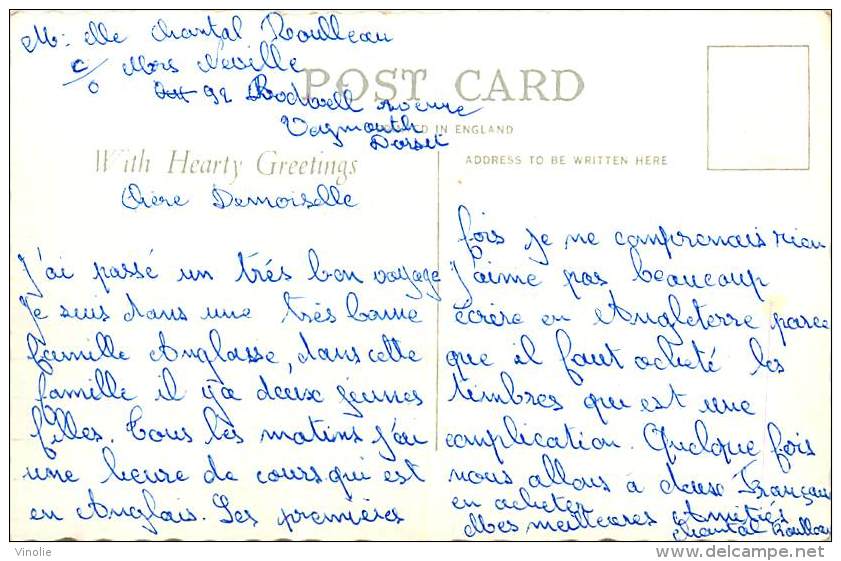 M: elle Chantal Roulleau
c/o Mors Neville
92 Rodwell avenue
POST CARD
Vaymouth
IN ENGLAND
Dorset
With Hearty Greetings
ADDRESS TO BE WRITTEN HERE
Chère Demoiselle
J'ai passé un très bon voyage
Je suis dans une très bonne
famille Anglasse, dans cette
famille il y a deux jeunes
filles. Tous les matins j'ai
une heure de cours qui est
en Anglais. Les premières
fois je ne comprenais rien
J'aime pas beaucoup
écrire en Angleterre parce
que il faut acheté les
timbres qui est une
complication. Quelque fois
nous allons à deux Français
en acheter
Mes meilleures Amitiés
Chantal Roulleau
Vinolie
delcampe.net